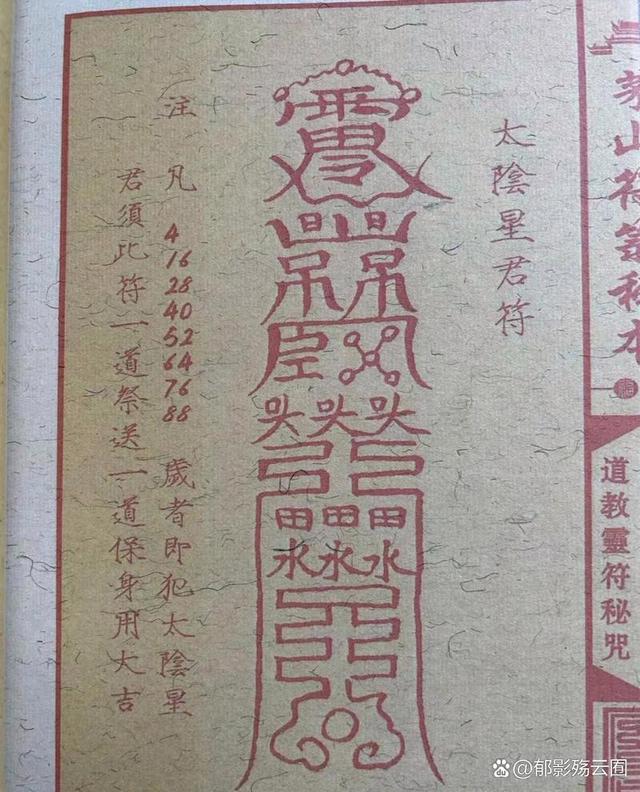 茅山符箓秘本
道教靈符秘咒
太陰星君符
頭頭頭
田田田
水水水
注 凡 4 16 28 40 52 64 76 88 歲者即犯太陰星
君須此符一道祭送一道保身用大吉
郁影殇云囿